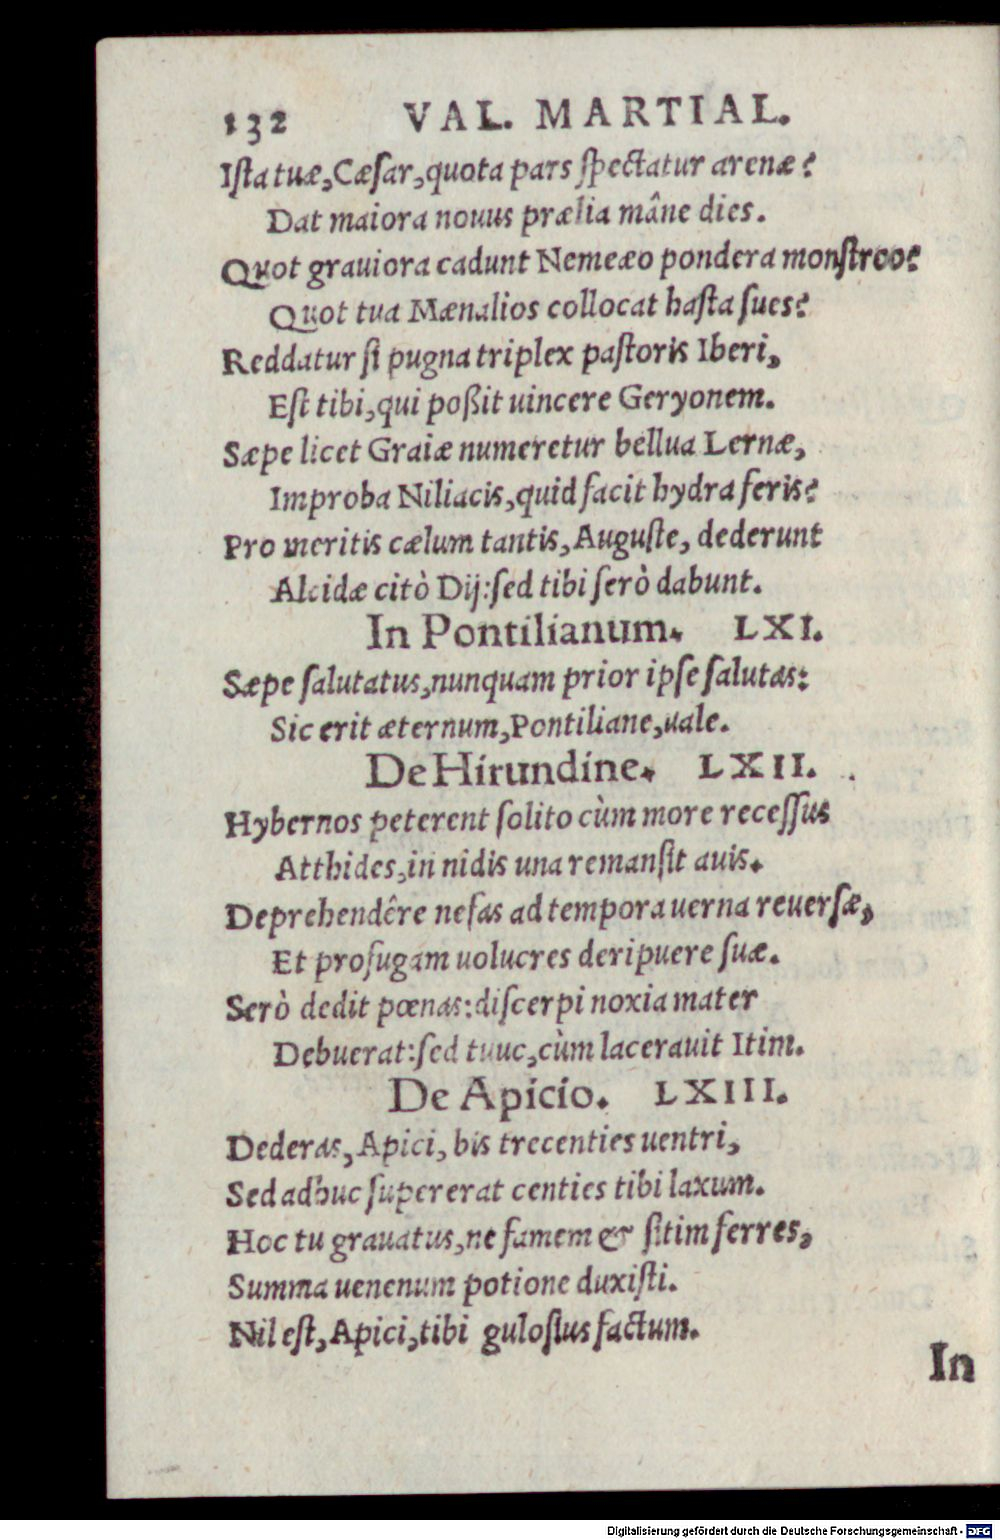 132 VAL. MARTIAL.
Iſta tuæ, Cæſar, quota pars ſpectatur arenæ?
Dat maiora nouus prælia mâne dies.
Quot grauiora cadunt Nemeæo pondera monſtroo?
Quot tua Mænalios collocat haſta ſues?
Reddatur ſi pugna triplex paſtoris Iberi,
Eſt tibi, qui poßit uincere Geryonem.
Sæpe licet Graiæ numeretur bellua Lernæ,
Improba Niliacis, quid facit hydra feris?
Pro meritis cælum tantis, Auguſte, dederunt
Alcidæ citò Dij: ſed tibi ſerò dabunt.
In Pontilianum. LXI.
Sæpe ſalutatus, nunquam prior ipſe ſalutas:
Sic erit æternum, Pontiliane, uale.
De Hirundine. LXII.
Hybernos peterent ſolito cùm more receſſus
Atthides, in nidis una remanſit auis.
Deprehendêre nefas ad tempora uerna reuerſæ,
Et profugam uolucres deripuere ſuæ.
Serò dedit pœnas: diſcerpi noxia mater
Debuerat: ſed tuuc, cùm lacerauit Itim.
De Apicio. LXIII.
Dederas, Apici, bis trecenties uentri,
Sed adhuc ſupererat centies tibi laxum.
Hoc tu grauatus, ne famem & ſitim ferres,
Summa uenenum potione duxiſti.
Nil eſt, Apici, tibi guloſius factum.
In
Digitalisierung gefördert durch die Deutsche Forschungsgemeinschaft - DFG